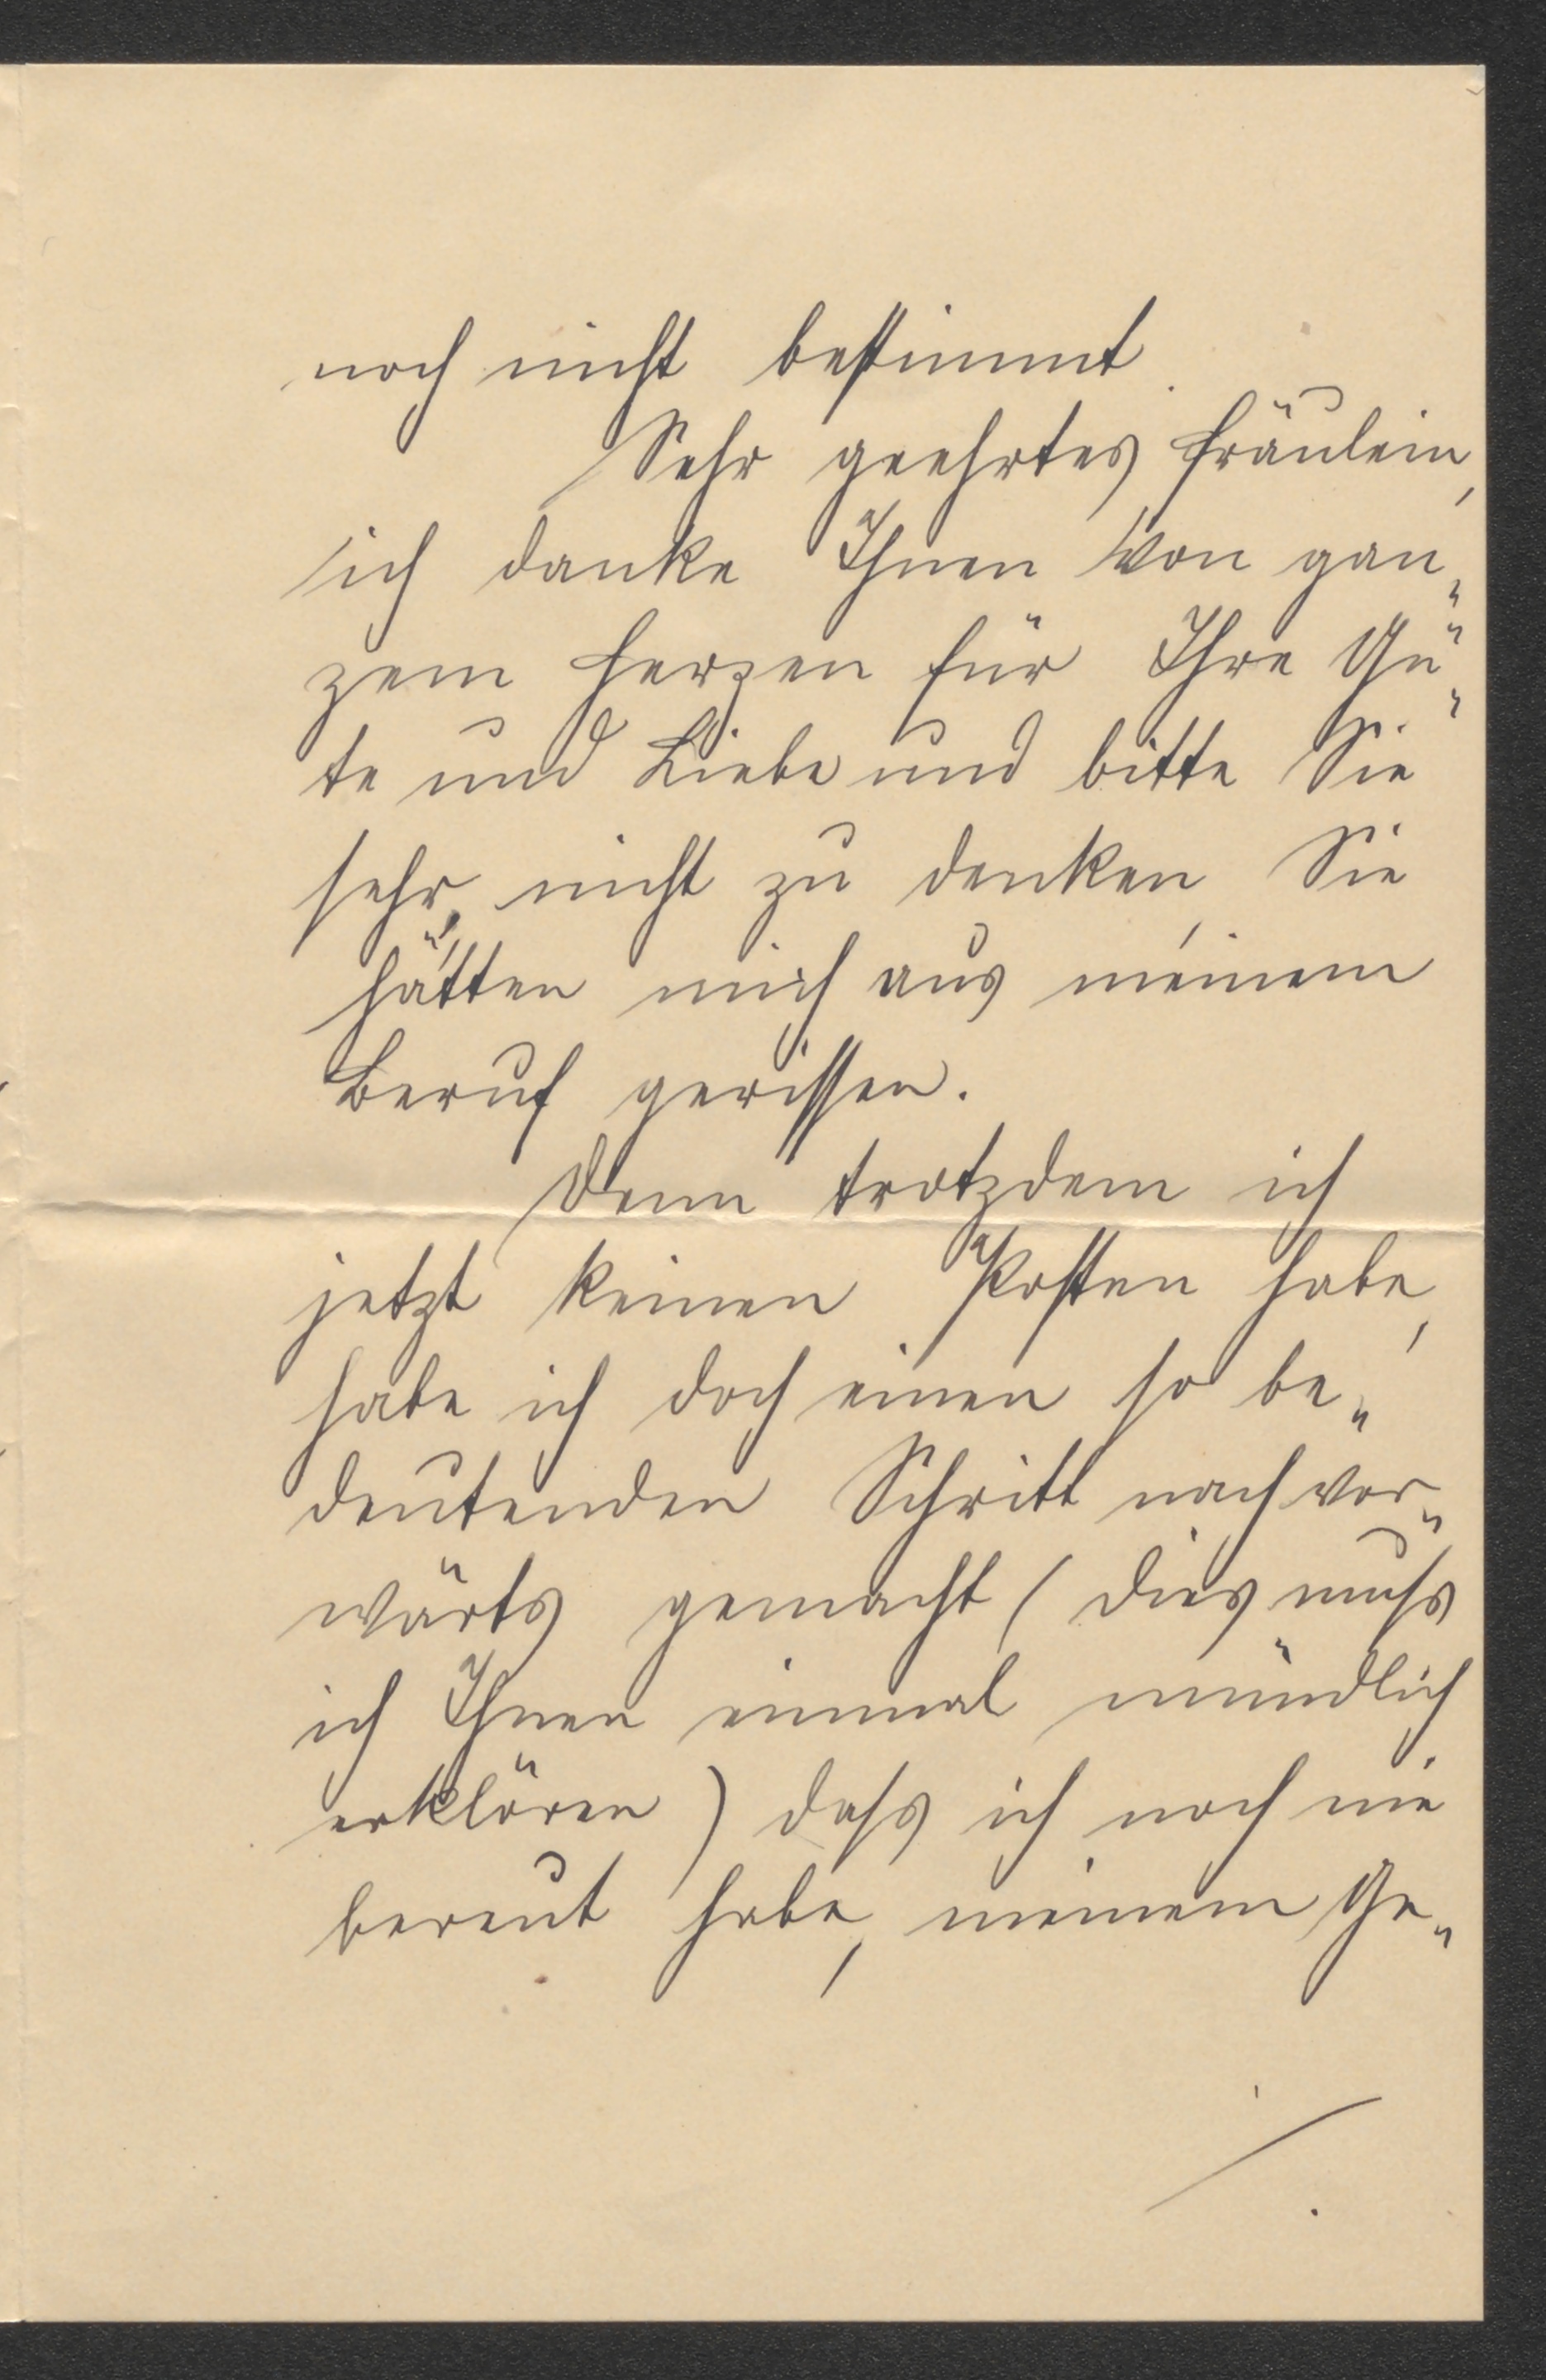 noch nicht bestimmt.
Sehr geehrtes Fräulein,
ich danke Ihnen von gan„
zem Herzen für Ihre Gü„
te und Liebe und bitte Sie
sehr, nicht zu denken, Sie
hätten mich aus meinem
Beruf gerissen.
Denn trotzdem ich
jetzt keinen Posten habe,
habe ich doch einen so be„
deutenden Schritt nach vor„
wärts gemacht (dies muss
ich Ihnen einmal mündlich
erklären) dass ich noch nie
bereut habe, meinem Ge„
./.